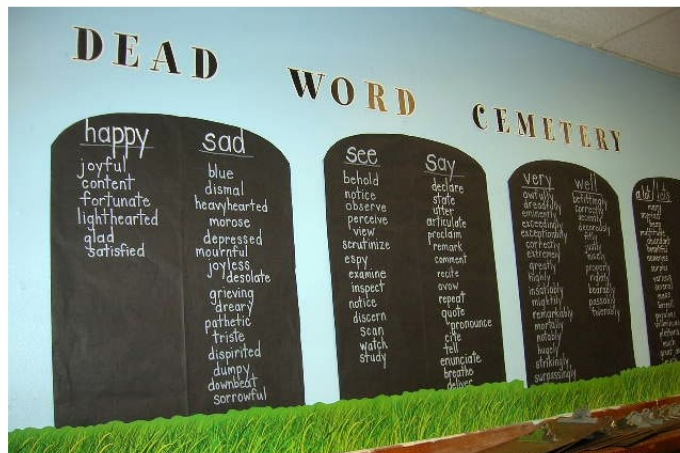 DEAD WORD CEMETERY
happy
joyful
content
fortunate
lighthearted
glad
satisfied
sad
blue
dismal
heavyhearted
morose
depressed
mournful
joyless
desolate
grieving
dreary
pathetic
triste
dispirited
dumpy
downbeat
sorrowful
see
behold
notice
observe
perceive
view
scrutinize
espy
examine
inspect
notice
discern
scan
watch
study
say
declare
state
utter
articulate
proclaim
remark
comment
recite
avow
repeat
quote
pronounce
cite
tell
enunciate
breathe
deliver
very
awfully
dreadfully
eminently
exceedingly
exceptionally
correctly
extremely
greatly
highly
insatiably
mightily
remarkably
mortally
notably
hugely
strikingly
surpassingly
well
befittingly
correctly
decently
decorously
fully
nicely
properly
rightly
bearably
passably
tolerably
many